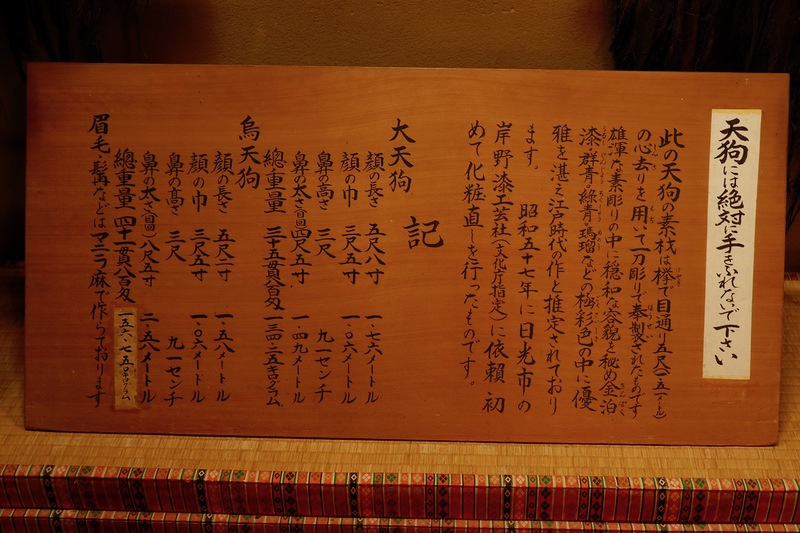 天狗には絶対に手をふれないで下さい
此の天狗の素材は欅で目通り五尺(一・五一メートル)
の心去りを用いて一刀彫りで奉製されたものです
雄渾な素彫りの中に穏和な容貌を秘め金泊
漆・群青・綠青・瑪瑙などの極彩色の中に優
雅を湛え江戸時代の作と推定されており
ます。 昭和五十七年に日光市の
岸野漆工芸社(文化庁指定)に依頼 初
めて化粧直しを行ったものです。
記
大天狗
顔の長さ 五尺八寸 一・七六メートル
顔の巾 三尺五寸 一・〇六メートル
鼻の高さ 三尺 九一センチ
鼻の太さ(合回)四尺五寸 一・四九メートル
総重量 三十五貫八百匁 一三四・二五キログラム
烏天狗
顔の長さ 五尺二寸 一・五八メートル
顔の巾 三尺五寸 一・〇六メートル
鼻の高さ 三尺 九一センチ
鼻の太さ(合回)八尺五寸 二・五八メートル
總重量 四十一貫八百匁 一五六・七五キログラム
眉毛・髯などはマニラ麻で作られております